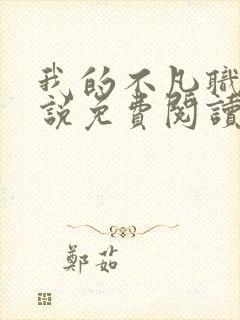 我的不凡職
說免費閱讀
鄭茹